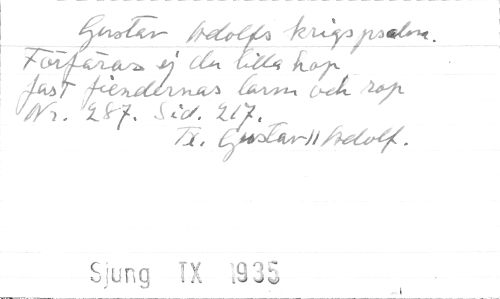 Gustav Adolfs krigspsalm.
Förfäras ej du lilla hop
fast fiendernas larm och rop
Nr. 287. Sid. 217.
Tx. Gustav II Adolf.
Sjung IX 1935